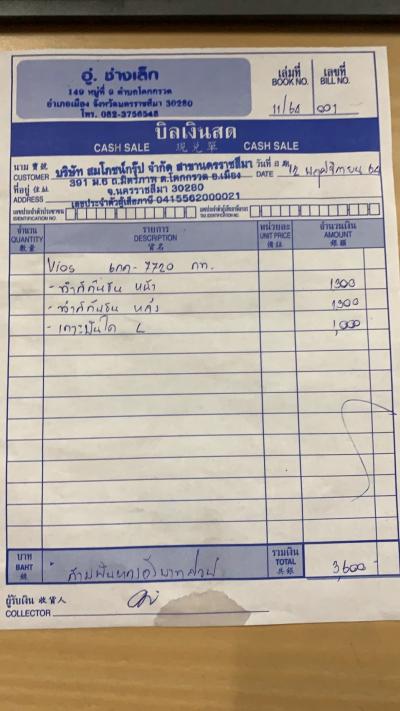 อู่ ช่างเล็ก
149 หมู่ที่ 9 ตำบลโคกกรวด
อำเภอเมือง จังหวัดนครราชสีมา 30280
โทร. 082-3756548
เล่มที่ เลขที่
BOOK NO. BILL NO.
11/64 001
บิลเงินสด
CASH SALE 現兌單 CASH SALE
นาม 寶號
CUSTOMER บริษัท สมโภชน์กรุ๊ป จำกัด สาขานครราชสีมา วันที่ DATE 12 พฤศจิกายน 64
ที่อยู่ 住址 391 ม.6 ถ.มิตรภาพ ต.โคกกรวด อ.เมือง
ADDRESS จ.นครราชสีมา 30280
เลขประจำตัวผู้เสียภาษี 0415562000021
เลขประจำตัวประชาชน
IDENTIFICATION NO.
เลขประจำตัวผู้เสียภาษีอากร
TAX IDENTIFICATION NO.
จำนวน รายการ หน่วยละ จำนวนเงิน
QUANTITY DESCRIPTION UNIT PRICE AMOUNT
數量 貨名 備註 銀額
Vios 6กก-7720 กท.
- ทำสีกันชน หน้า 1300
- ทำสีกันชน หลัง 1300
- เคาะบันได L 1,000
บาท รวมเงิน
BAHT สามพันหกร้อยบาทถ้วน TOTAL 3,600-
銖 共銀
ผู้รับเงิน 收貨人
COLLECTOR